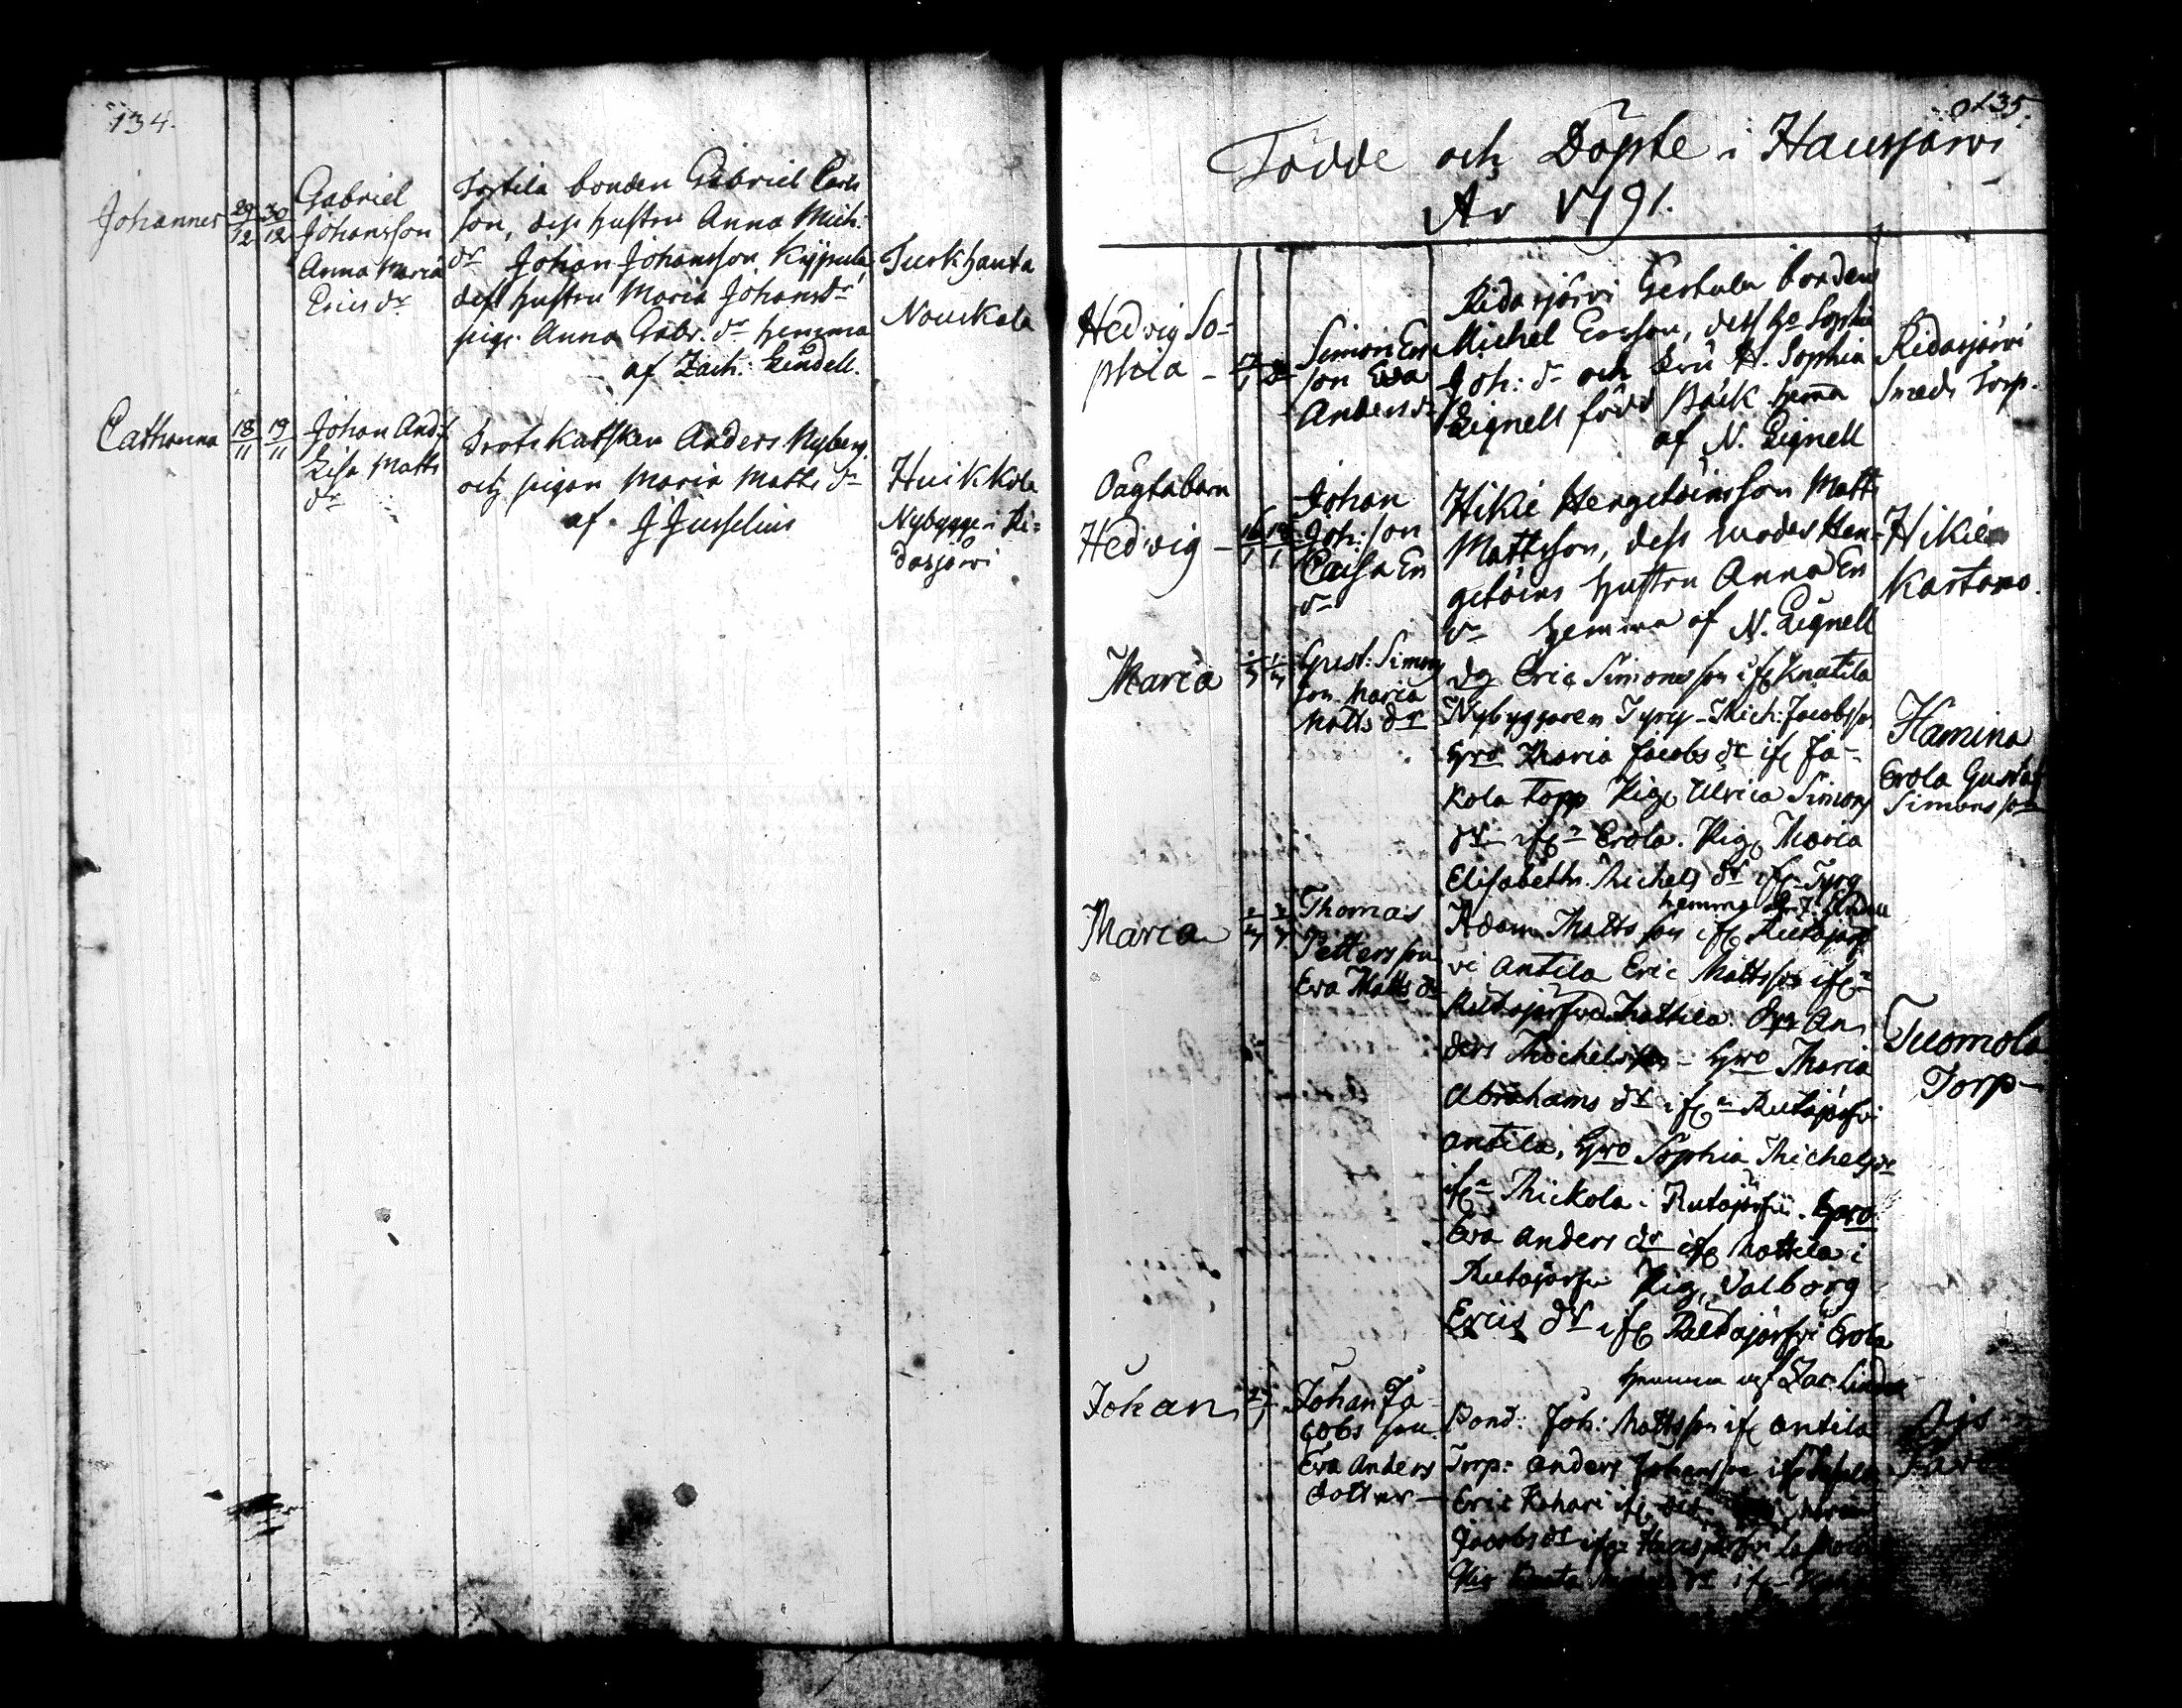 134.
Johannes 29/12 30/12
Gabriel
Johansson
Anna Maria
Erics dr
bonden Gabriel Carls
son, dess hustru Anna Mich:
dr Johan Johansson Kÿpula,
dess hustru Maria Johansdr
pig. Anna Gabr. dr hemma
af Zach: Lindell.
Turkhauta
Noukola
Catharina 18/11 19/11
Johan And:s
Lisa Matts
dr
Anders Nyberg
och pigan Maria Matts dr
af J Jusselius
Huikkola
Nybygge i Ri=
dasjärvi
135.
Födde och Döpte i Hausjärvi
År 1791.
Hedvig So=
phia
Simon Ers
son Eva
Anders dr
Ridasjärvi bonden
Michel Ersson, dess ho Sophia
Joh: dr och Fru H. Sophia
Lignell född Bäck hemma
af N. Lignell
Ridasjärvi
Smeds Torp.
Oägta barn
Hedvig 16/1
Johan
Joh: son
Caisa Er
dr
Hikiä Hengetöinsson Matts
Mattsson, dess moder Hen=
getöins hustru Anna Er
dr hemma af N. Lignell
Hikiä
Kartano.
Maria
Gust: Simons
son Maria
Matts dr
Dg Eric Simonsson ifr Knutila
Nybyggaren Tyry Mich: Jacobsso
Hro Maria Jacobs dr ifr Ja=
kola Topp Pig. Ulrica Simons
dr ifrn Erola. Pig. Maria
Elisabeth Michels dr ifrn Tyry
hemma
Hamina
Erola Gustaf
Simonsson
Maria
Thomas
Pettersson
Eva Matts dr
Adam Mattsson ifr Rutajärf
vi Antila Eric Mattsson ifrn
Rutajärfvi Mattila. An
ders Michelsson - Hro Maria
Abrahams dr ifrn Rutajärfvi
Antila, Hro Sophia Michels dr
ifrn Mickola i Rutajärfvi. Hro
Eva Anders dr ifr Mattila i
Rutajärfvi Pig. Valborg
Erics dr ifr Rutajärfvi Erola
hemma af Zac: Lindell
Tuomola
Torp
Johan
Johan Ja
cobs son
Eva Anders
dotter
Bond: Joh: Mattsson ifr Antila
Torp: Anders Johansson ifr
Eric ifr
Jacobs dr ifrn Hausjärfvi